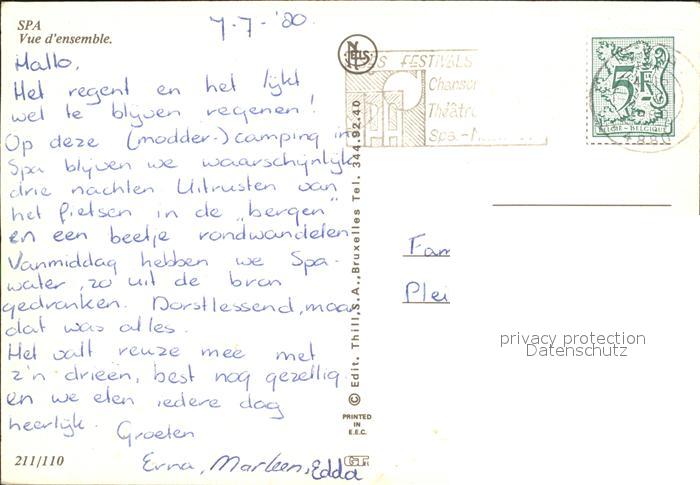 SPA
Vue d'ensemble.
7-7-'80.
Hallo,
Het regent en het lijkt
wel te blijven regenen!
Op deze (modder-)camping in
Spa blijven we waarschijnlijk
drie nachten Uitrusten van
het fietsen in de "bergen"
en een beetje rondwandelen.
Vanmiddag hebben we Spa-
water, zo uit de bron
gedronken. Dorstlessend, maar
dat was alles.
Het valt reuze mee met
z'n drieën, best nog gezellig
en we eten iedere dag
heerlijk.
Groeten
Erna, Marleen, Edda
211/110
© Edit. Thill, S.A., Bruxelles Tel. 344.92.40
PRINTED
IN
E.E.C.
NELS
FESTIVALS
Chanson
Théâtre
Spa.-
5F
BELGIE - BELGIQUE
Fam
Plei
privacy protection
Datenschutz